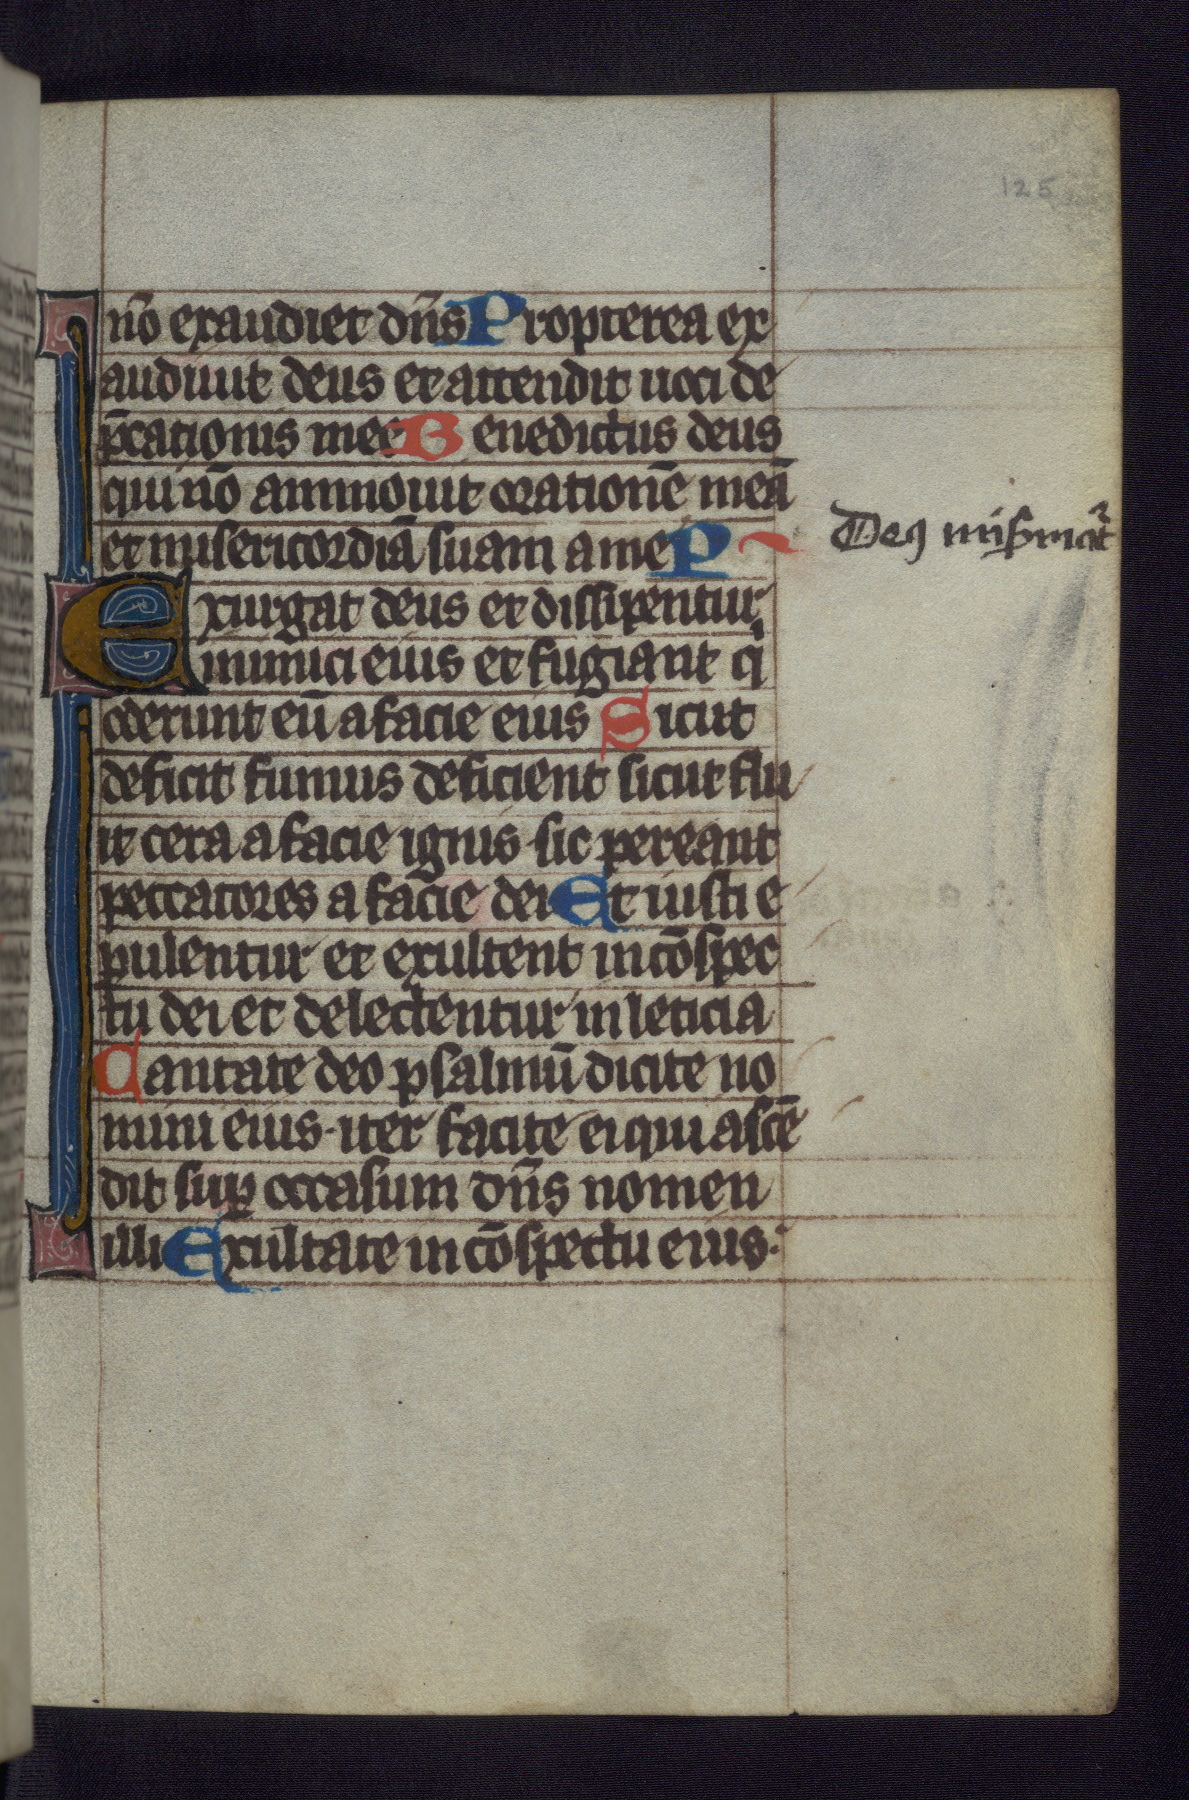 125
nō exaudiet dn̄s Propterea ex
audiuit deus et attendit uoci de
p̄cationis mee Benedictus deus
qui nō ammouit orationē meā
et misericordiā suam a me P
Deꝰ
Exurgat deus et dissipentur
inimici eius et fugiant qͥ
oderunt eū a facie eius Sicut
deficit fumus deficient sicut flu
it cera a facie ignis sic pereant
peccatores a facie dei Et iusti e
pulentur et exultent in cōspec
tu dei et delectentur in leticia
Cantate deo psalmū dicite no
mini eius· iter facite ei qui ascē
dit suꝑ occasum dn̄s nomen
illi Exultate in cōspectu eius·